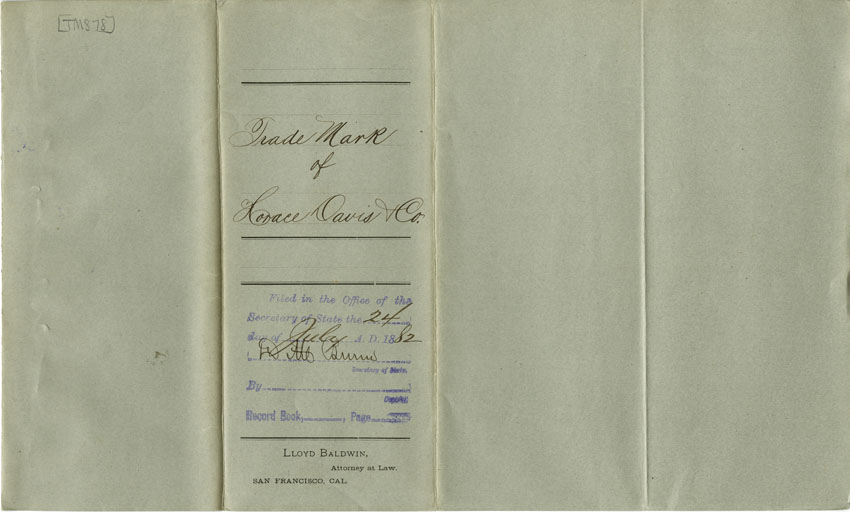 [TMS 78]
Trade Mark
of
Horace Davis & Co.
Filed in the Office of the
Secretary of State the 24
day of July A. D. 1882
Burns
Secretary of State.
By
Deputy
Record Book, Page
LLOYD BALDWIN,
Attorney at Law.
SAN FRANCISCO, CAL.